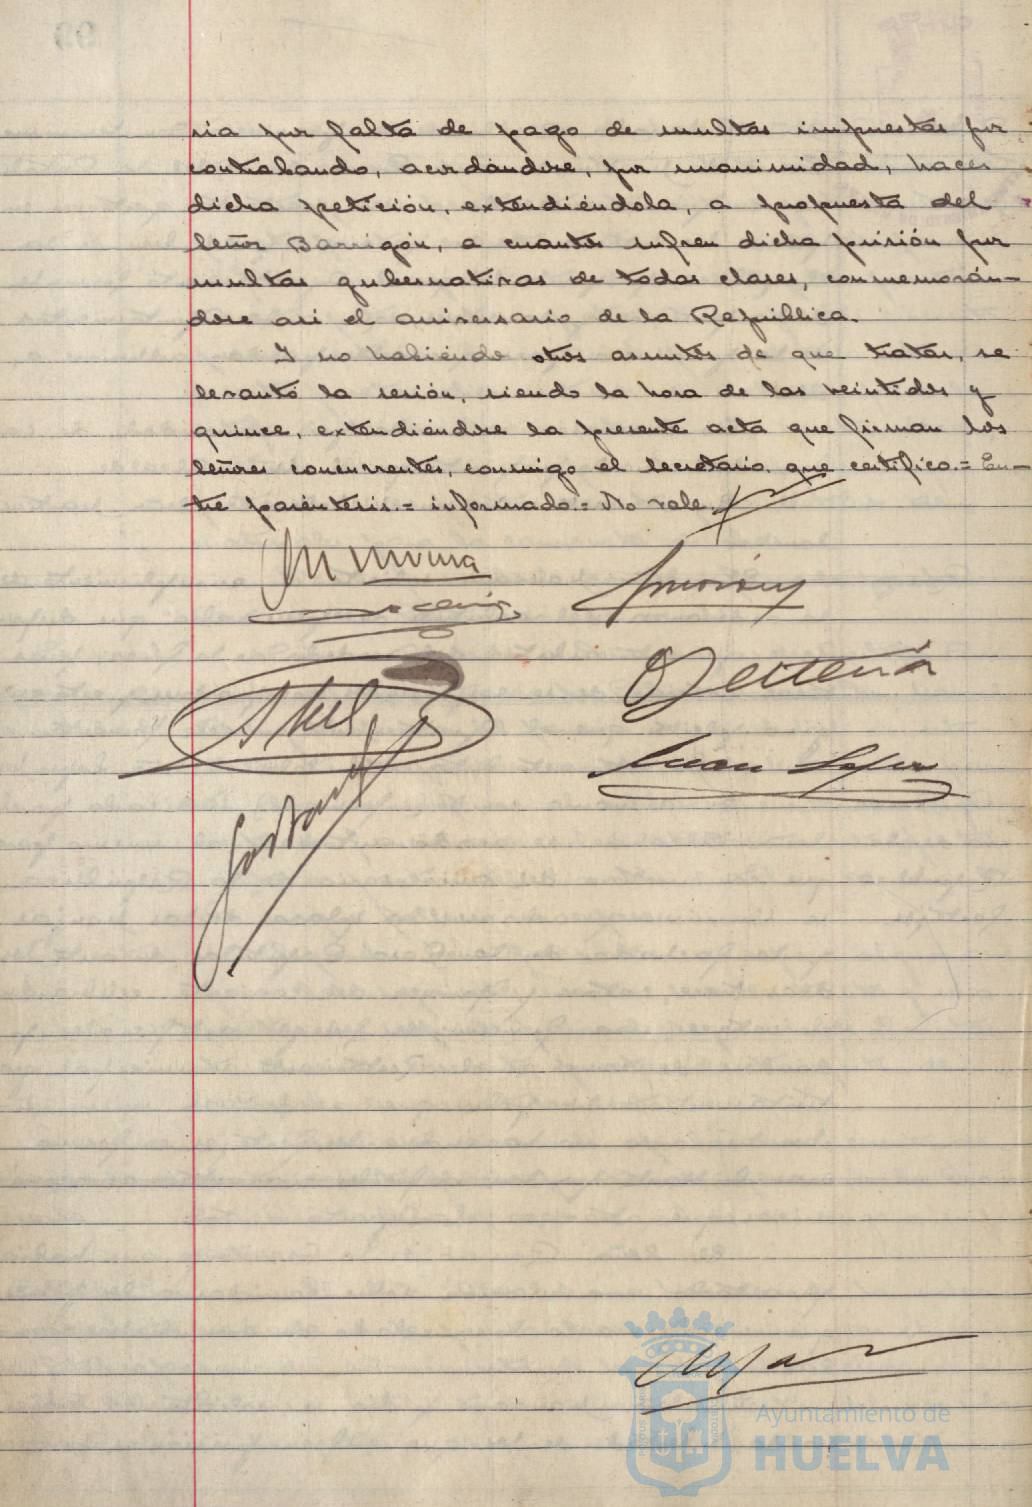 ria por falta de pago de multas impuestas por
contrabando, acordándose, por unanimidad, hacer
dicha petición, extendiéndola, a propuesta del
Señor Barrigón, a cuantos sufren dicha prisión por
multas gubernativas de todas clases, conmemorán-
dose así el aniversario de la República.
Y no habiendo otros asuntos de que tratar, se
levantó la sesión, siendo la hora de las veintidos y
quince, extendiéndose la presente acta que firman los
Señores concurrentes, conmigo el Secretario que certifico.= En-
tre paréntesis.= informado.= No vale.
Juan
Ayuntamiento de
HUELVA